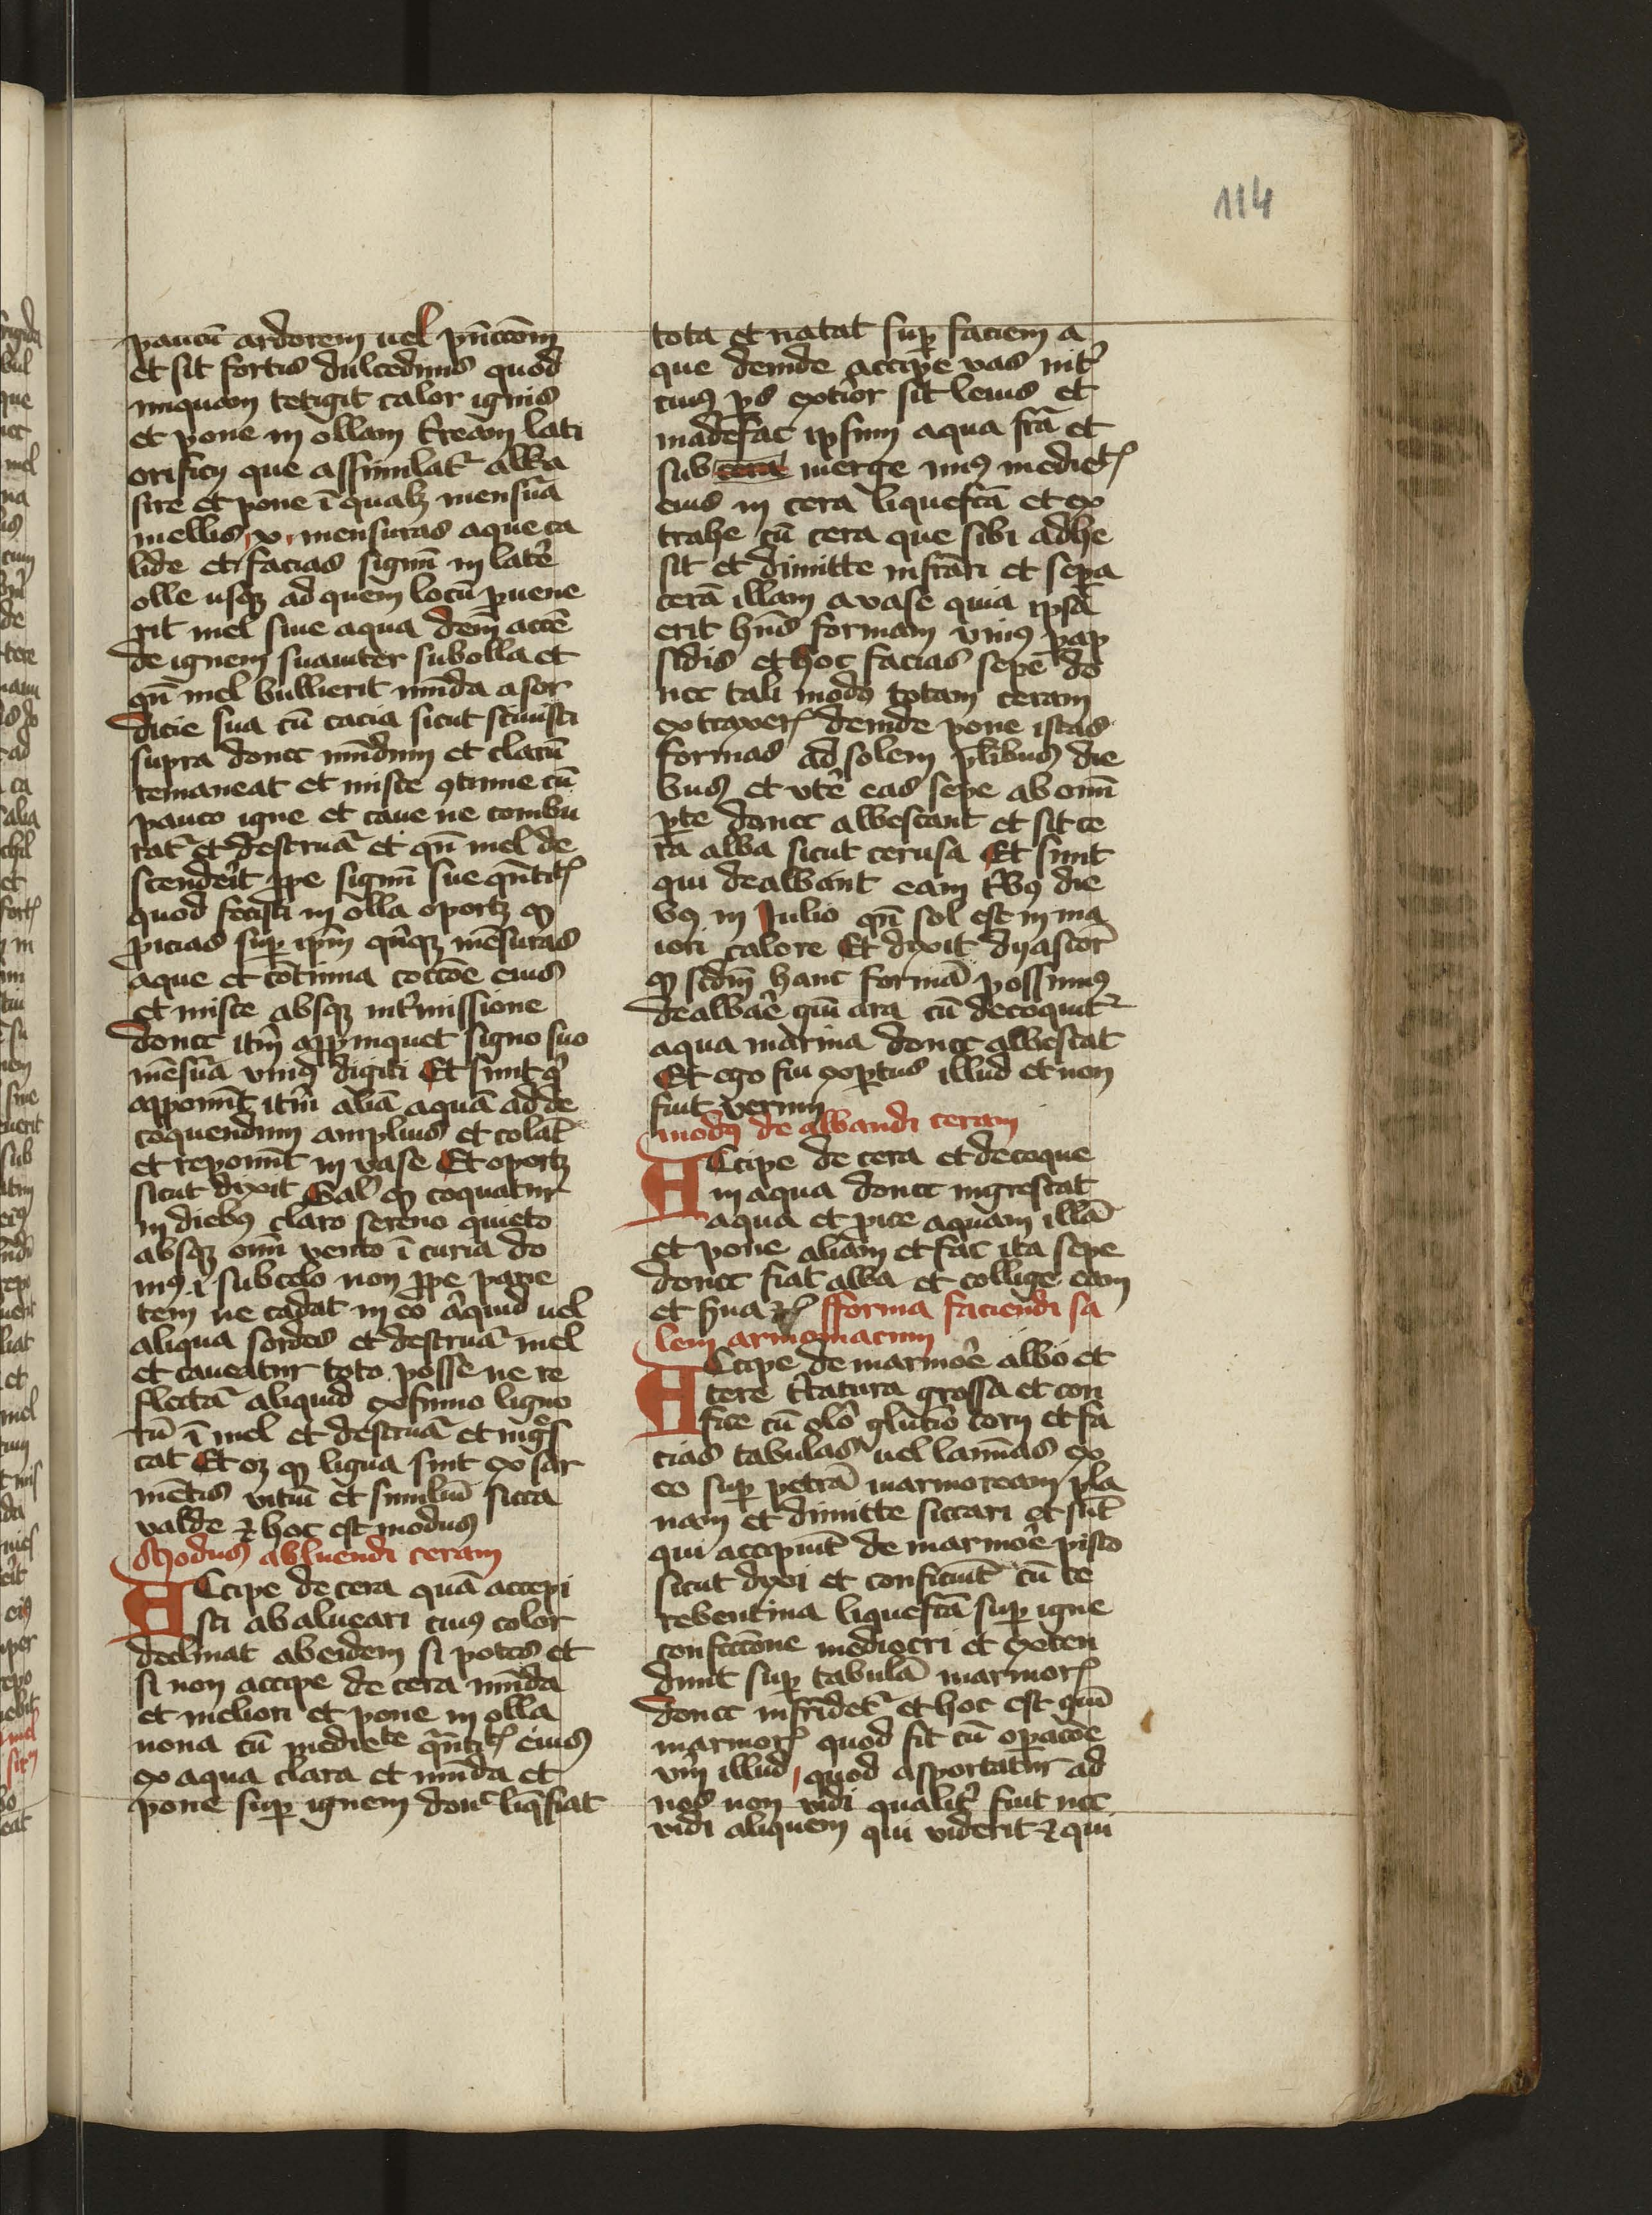 114
paucū ardorem uel pūctōm
et sit fortis dulcedinis quod
nūquam tetigit calor ignis
et pone in ollam t'ream lati
orificij que assimilat' alba
sire et pone ī qualꝫ mensura
mellis x mensuras aque ca
lide et facias signū in late
olle usqꝫ ad quem locū puene
rit mel siue aqua dem accē
de ignem suauiter sub olla et
qn̄ mel bullierit mūda a sor
dicie sua cū cacia sicut sciuisti
supra donec mūdum et clarū
remaneat et misce 9tinue cū
pauco igne et caue ne combu
rat' et destruā et qn̄ mel de
scenderit ꝓpe signū sue qn̄tit
quod fecisti in olla oportꝫ ꝙ
picias sup ipm̄ qnqꝫ mēsuras
aque et cōtinua coctōe eius
et misce absqꝫ int'missione
donec itm̄ appinquet signo suo
mēsura vniꝰ digiti Et sunt q
apponūt itm̄ aliā aquā ad de
coquendum amplius et colat'
et reponūt in vase Et oportꝫ
sicut dixit Gal' ꝙ coquatur
in diebꝰ claro sereno quieto
absqꝫ om̄i vento ī curia do
mꝰ ī sub celo non ꝓpe parie
tem ne cadat in eo aliquid uel
aliqua sordes et destruā mel
et caueatur toto posse ne re
flectā aliquid ex fumo ligno
rū ī mel et destruā et nigrs
cat Et oꝫ ꝙ ligna sint ex sar
mētis vitiū et similiū sicca
valde ⁊ hoc est modus
Modus abluendi ceram
ACcipe de cera quā accepi
sti ab alueari cuiꝰ color
declinat ab eidem si potes et
si non accipe de cera mūda
et meliori et pone in olla
noua cū mediete qn̄tit eius
ex aqua clara et mūda et
pone sup ignem donc liqfiat
tota et natat sup faciem a
que deinde accipe vas nit'
cuiꝰ ps extior sit leuis et
madefac ipsum aqua fr̄a et
sub cera merge miꝰ mediet
eius in cera liquefcā et ex
trahe cū cera que sibi adhe
sit et dimitte infrāri et sepa
cerā illam a vase quia ipsa
erit hn̄s formam vniꝰ pap
sidis et hoc facias sepe do
nec tali modo totam ceram
extraxer deinde pone istas
formas ad solem plibus die
bus et vte eas sepe ab om̄i
pte donec albescant et sit ce
ra alba sicut cerusa Et sunt
qui dealbant eam t'bꝰ die
bꝰ in Julio qn̄ sol est in ma
iori calore Et dixit dyascor
ꝙ scdm̄ hanc formā possumꝰ
dealbare gm̄ ara cū decoquit'
aqua marina donec albescat
Et ego fui expertus illud et non
fuit verum
modꝰ de albandi ceram
ACcipe de cera et decoque
in aqua donec nigrescat
aqua et pice aquam illā
et pone aliam et fac ita sepe
donec fiat alba et collige eam
et s̄ua ⁊c fforma faciendi sa
lem armoniacum
ACcipe de marmore albo et
tere t'tatura grossa et con
fice cū olo glutio corij et fa
cias tabulas uel laminas ex
eo sup petrā marmoream pla
nam et dimitte siccari et sūt
qui accipiūt de marmore pisto
sicut dixi et conficiūt cū te
rebentina liquefcā sup igne
confcctōne mediocri et exten
dunt sup tabulā marmor
donec infridet' et hoc est gm̄
marmor quod fit cū opacōe
vn̄ illud quod asportatur ad
nos non vidi qualit' fiut nec
vidi aliquem qui viderit ⁊ qui